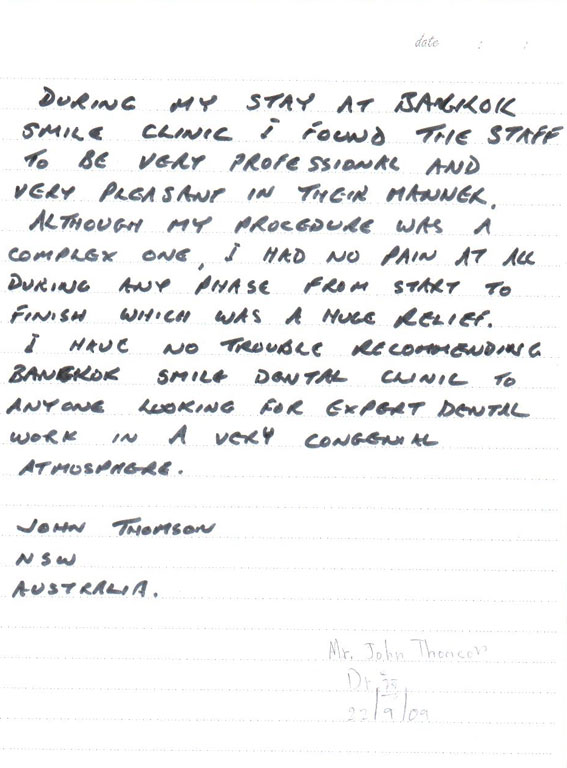 date : :
DURING MY STAY AT BANGKOK
SMILE CLINIC I FOUND THE STAFF
TO BE VERY PROFESSIONAL AND
VERY PLEASANT IN THEIR MANNER.
ALTHOUGH MY PROCEDURE WAS A
COMPLEX ONE, I HAD NO PAIN AT ALL
DURING ANY PHASE FROM START TO
FINISH WHICH WAS A HUGE RELIEF.
I HAVE NO TROUBLE RECOMMENDING
BANGKOK SMILE DENTAL CLINIC TO
ANYONE LOOKING FOR EXPERT DENTAL
WORK IN A VERY CONGENIAL
ATMOSPHERE.
JOHN THOMSON
NSW
AUSTRALIA.
Mr. John Thomcon
Dr.
22/9/09